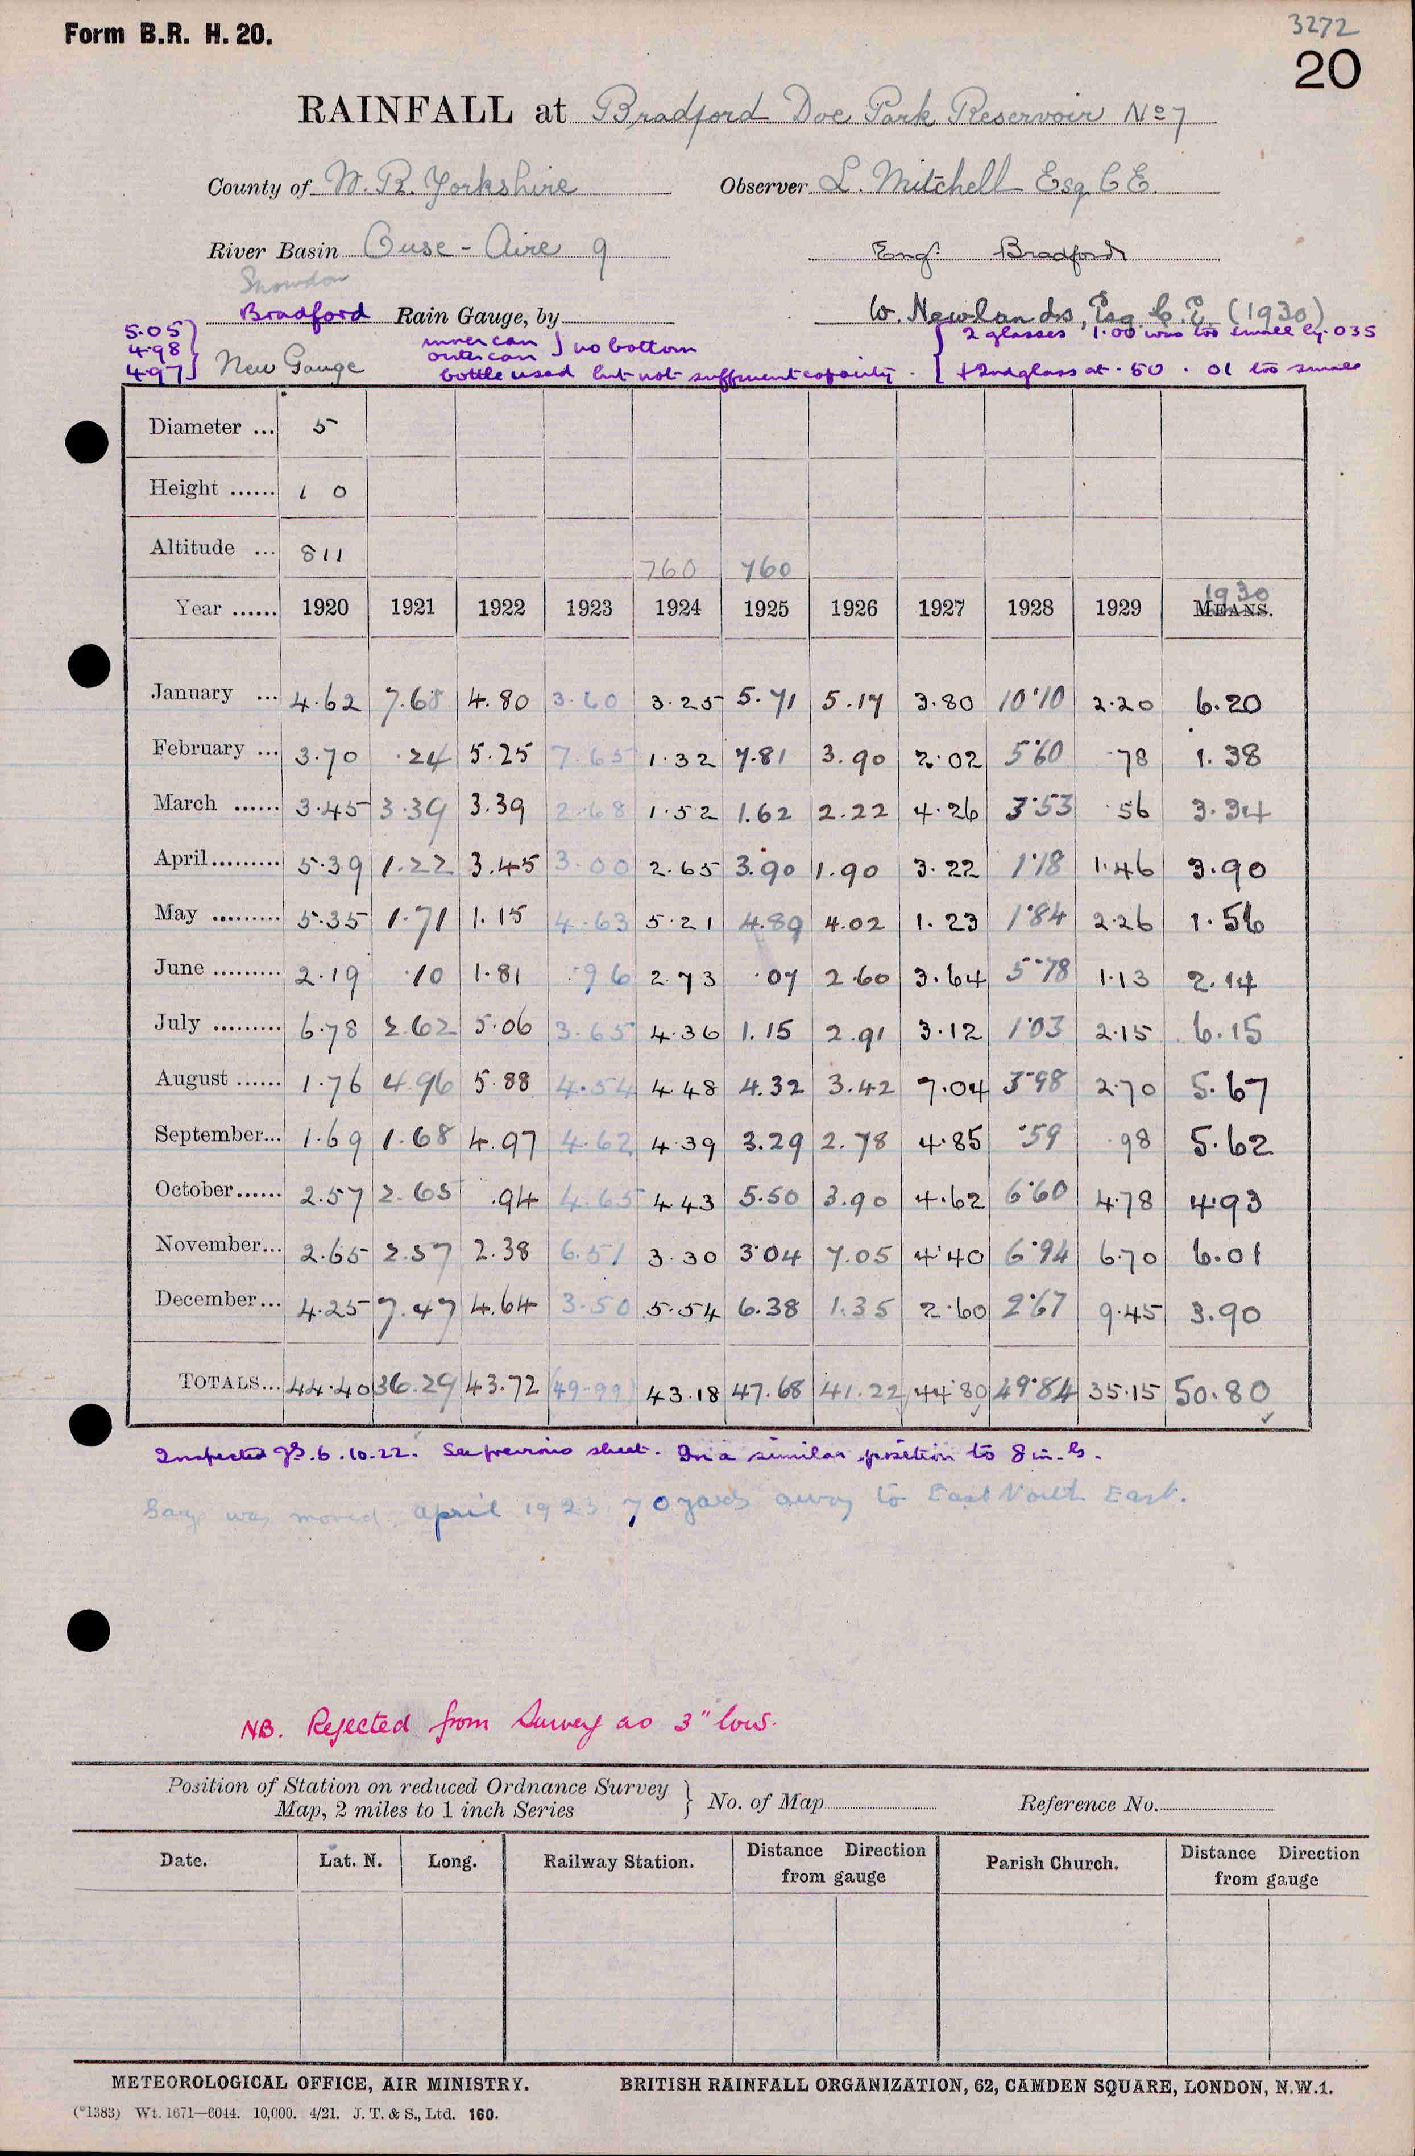 Form B.R. H. 20.
3272
20
RAINFALL at Bradford Doe Park Reservoir No 7
County of W. R. Yorkshire Observer L. Mitchell Esq C E.
River Basin Ouse - Aire 9 Engr. Bradford
Snowdon
Bradford Rain Gauge, by W. Newlands, Esq. C. E (1930)
5.05
4.98
4.97 } New Gauge
inner can
outer can } no bottom
bottle used but not sufficient capacity.
{ 2 glasses 1.00 was too small by .035
+ 2nd glass at .50 . 01 too small
Diameter ... 5
Height ...... 1 0
Altitude ... 811 760 760
Year ...... 1920 1921 1922 1923 1924 1925 1926 1927 1928 1929 MEANS. 1930
January ... 4.62 7.68 4.80 3.60 3.25 5.71 5.17 3.80 10.10 2.20 6.20
February ... 3.70 .24 5.25 7.65 1.32 7.81 3.90 2.02 5.60 .78 1.38
March ...... 3.45 3.39 3.39 2.68 1.52 1.62 2.22 4.26 3.53 .56 3.34
April......... 5.39 1.22 3.45 3.00 2.65 3.90 1.90 3.22 1.18 1.46 3.90
May ......... 5.35 1.71 1.15 4.63 5.21 4.89 4.02 1.23 1.84 2.26 1.56
June ......... 2.19 .10 1.81 .96 2.73 .07 2.60 3.64 5.78 1.13 2.14
July ......... 6.78 5.62 5.06 3.65 4.36 1.15 2.91 3.12 1.03 2.15 6.15
August ...... 1.76 4.96 5.88 4.54 4.48 4.32 3.42 7.04 3.98 2.70 5.67
September... 1.69 1.68 4.97 4.62 4.39 3.29 2.78 4.85 .59 .98 5.62
October...... 2.57 2.65 .94 4.65 4.43 5.50 3.90 4.62 6.60 4.78 4.93
November... 2.65 2.57 2.38 6.51 3.30 3.04 7.05 4.40 6.94 6.70 6.01
December... 4.25 7.47 4.64 3.50 5.54 6.38 1.35 2.60 2.67 9.45 3.90
TOTALS... 44.40 36.29 43.72 (49.99) 43.18 47.68 41.22 44.80 49.84 35.15 50.80
Inspected 6.10.22. See previous sheet. In a similar position to 8 in. G.
Gauge was moved April 1923 70 yards away to East North East.
NB. Rejected from Survey as 3" low.
Position of Station on reduced Ordnance Survey
Map, 2 miles to 1 inch Series } No. of Map Reference No.
Date. Lat. N. Long. Railway Station. Distance Direction from gauge Parish Church. Distance Direction from gauge
METEOROLOGICAL OFFICE, AIR MINISTRY. BRITISH RAINFALL ORGANIZATION, 62, CAMDEN SQUARE, LONDON, N.W.1.
(*1383) Wt. 1671—6044. 10,000. 4/21. J. T. & S., Ltd. 160.